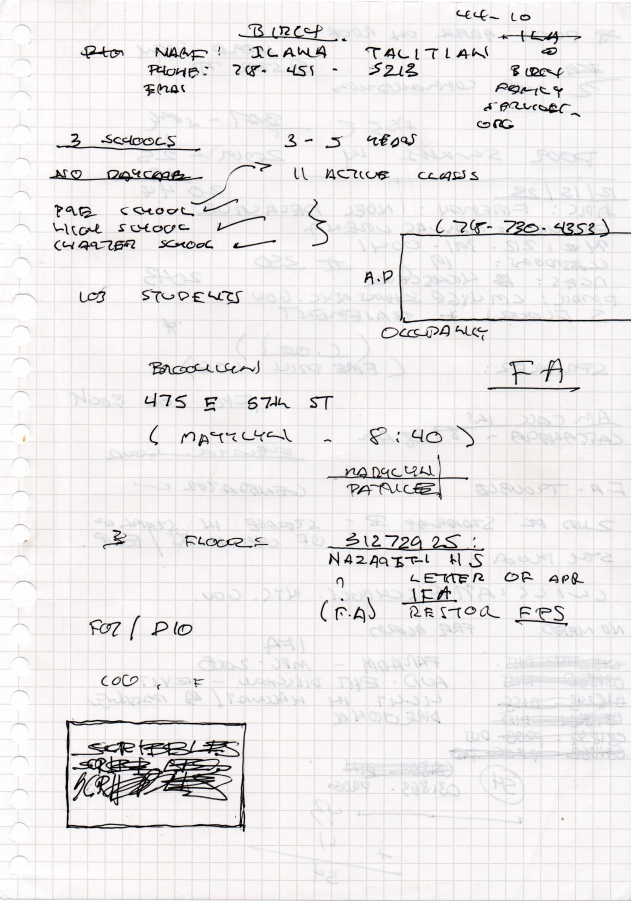 44-10
BIRCH
NAME: ILANA TALITIAN
PHONE: 718- 451 - 5213
EMAI
BIRCH
FAMILY
SERVICES.
ORG
3 SCHOOLS 3 - 5 YEARS
NO DAYCARE 11 ACTIVE CLASS
PRE SCHOOL
HIGH SCHOOL
CHARTER SCHOOL
(718-730-4353)
A.P
103 STUDENTS
OCCUPANCY
BROOKLYN FA
475 E 57th ST
( MARYLYN - 8:40 )
MADYCLYN
PATRICE
3 FLOORS 31272925:
NAZARETH HS
? LETTER OF APR
IFA
(F.A) RESTOR FPS
FOT / DIO
COO. F
SCRIBBLES